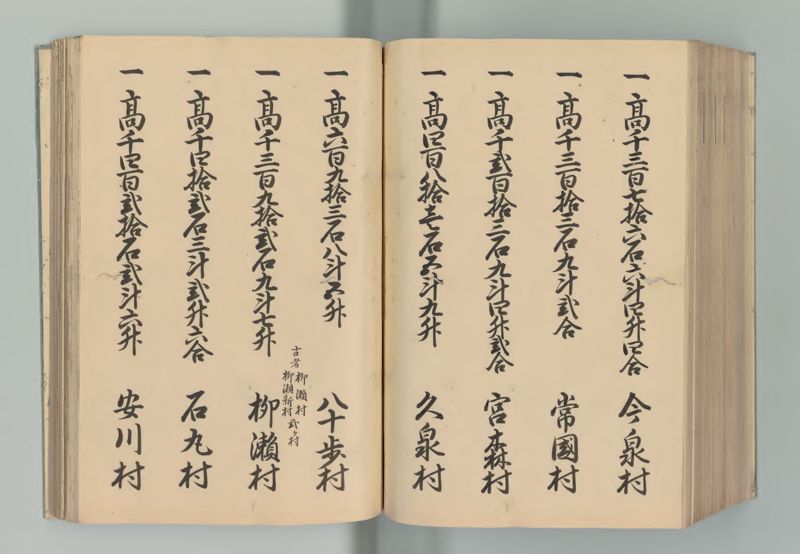 一高千三百七拾六石六斗四升四合 今泉村
一高千三百拾三石九斗弐合 常國村
一高千弐百拾三石九斗四升弐合 宮森村
一高四百八拾壱石五斗九升 久泉村
一高六百九拾三石八斗五升 八十歩村
古者柳瀬村
柳瀬新村 弐ヶ村
一高千三百九拾弐石九斗七升 柳瀬村
一高千四拾弐石三斗弐升六合 石丸村
一高千四百弐拾石弐斗六升 安川村